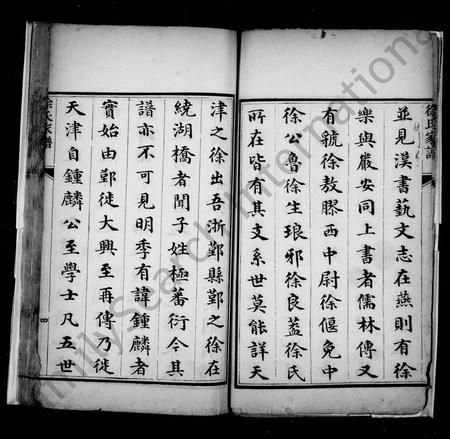 並見漢書藝文志在燕則有徐
樂與嚴安同上書者儒林傳又
有號徐敖膠西中尉徐偃免中
徐公魯徐生琅邪徐良蓋徐氏
所在皆有其支系世莫能詳天
津之徐出吾浙鄞縣鄞之徐在
繞湖橋者聞子姓極蕃衍今其
譜亦不可見明季有諱鍾麟者
實始由鄞徙大興至再傳乃徙
天津自鍾麟公至學士凡五世
徐氏家譜
徐氏家譜
四
FamilySearch International